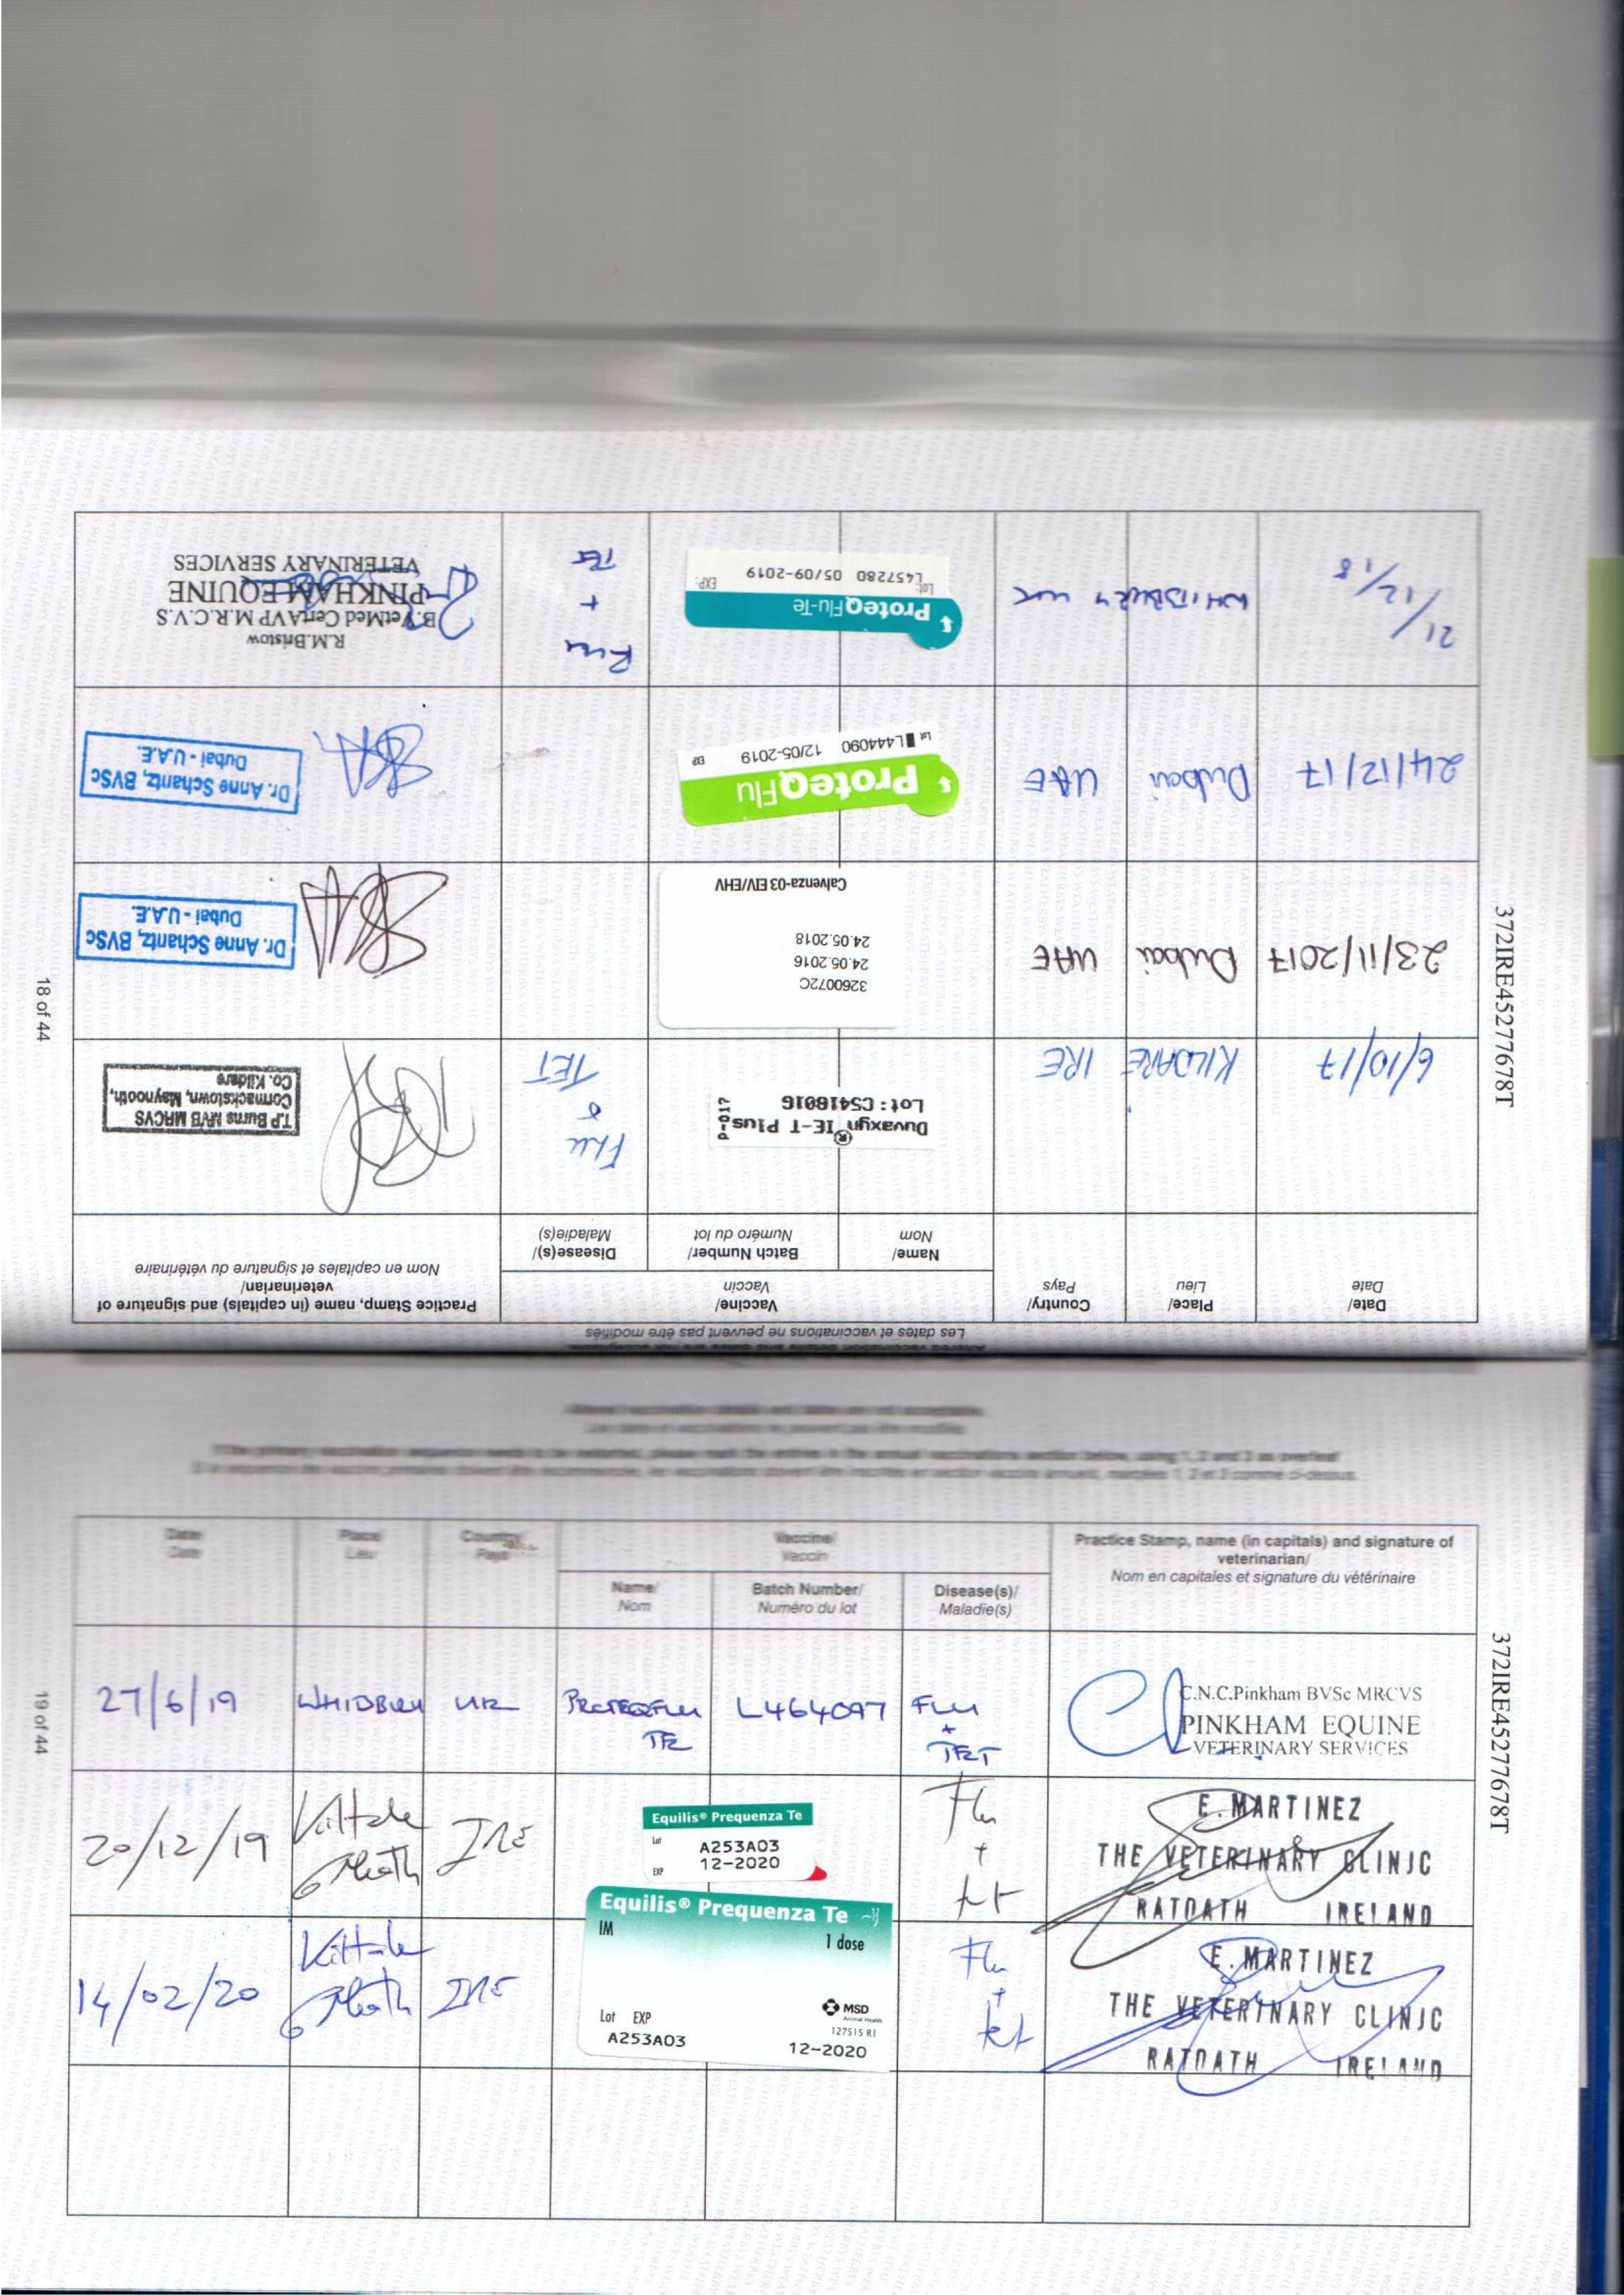 Altered vaccination details and dates are not acceptable.
Les dates et vaccinations ne peuvent pas être modifiés
Date/ Place/ Country/ Vaccine/ Practice Stamp, name (in capitals) and signature of
Date Lieu Pays Vaccin veterinarian/
Name/ Batch Number/ Disease(s)/ Nom en capitales et signature du vétérinaire
Nom Numéro du lot Maladie(s)
6/10/17 KILDARE IRE
Duvaxyn® IE-T Plus
Lot: C541801G
P-017
Flu
&
TET
T.P Burns MVB MRCVS
Cormackstown, Maynooth,
Co. Kildare
23/11/2017 Dubai UAE
3260072C
24.05.2016
24.05.2018
Calvenza-03 EIV/EHV
Dr. Anne Schantz, BVSc
Dubai - U.A.E.
24/12/17 Dubai UAE
ProteqFlu
Lot L444090 12/05-2019 EXP
Dr. Anne Schantz, BVSc
Dubai - U.A.E.
21/12/18 WHITSBURY UK
ProteqFlu-Te
Lot: L457280 05/09-2019 EXP:
Flu
+
TET
R.M.Bristow
B.VetMed CertAVP M.R.C.V.S
PINKHAM EQUINE
VETERINARY SERVICES
372IRE45277678T
18 of 44
Altered vaccination details and dates are not acceptable.
Les dates et vaccinations ne peuvent pas être modifiés
If the primary vaccination sequence needs to be restarted, please mark the entries in the annual vaccinations section below, using 1, 2 and 3 as overleaf
Date/ Place/ Country/ Vaccine/ Practice Stamp, name (in capitals) and signature of
Date Lieu Pays Vaccin veterinarian/
Name/ Batch Number/ Disease(s)/ Nom en capitales et signature du vétérinaire
Nom Numéro du lot Maladie(s)
27/6/19 WHIDBURY UK PROTEQFLU L464097 FLU
TE +
TET
C.N.C.Pinkham BVSc MRCVS
PINKHAM EQUINE
VETERINARY SERVICES
20/12/19 Meath IRE
Equilis® Prequenza Te
Lot A253A03
EXP 12-2020
Flu
+
tet
E. MARTINEZ
THE VETERINARY CLINIC
RATOATH IRELAND
14/02/20 Meath IRE
Equilis® Prequenza Te
IM
1 dose
MSD
Animal Health
Lot EXP
127515 R1
A253A03 12-2020
Flu
+
tet
E. MARTINEZ
THE VETERINARY CLINIC
RATOATH IRELAND
372IRE45277678T
19 of 44